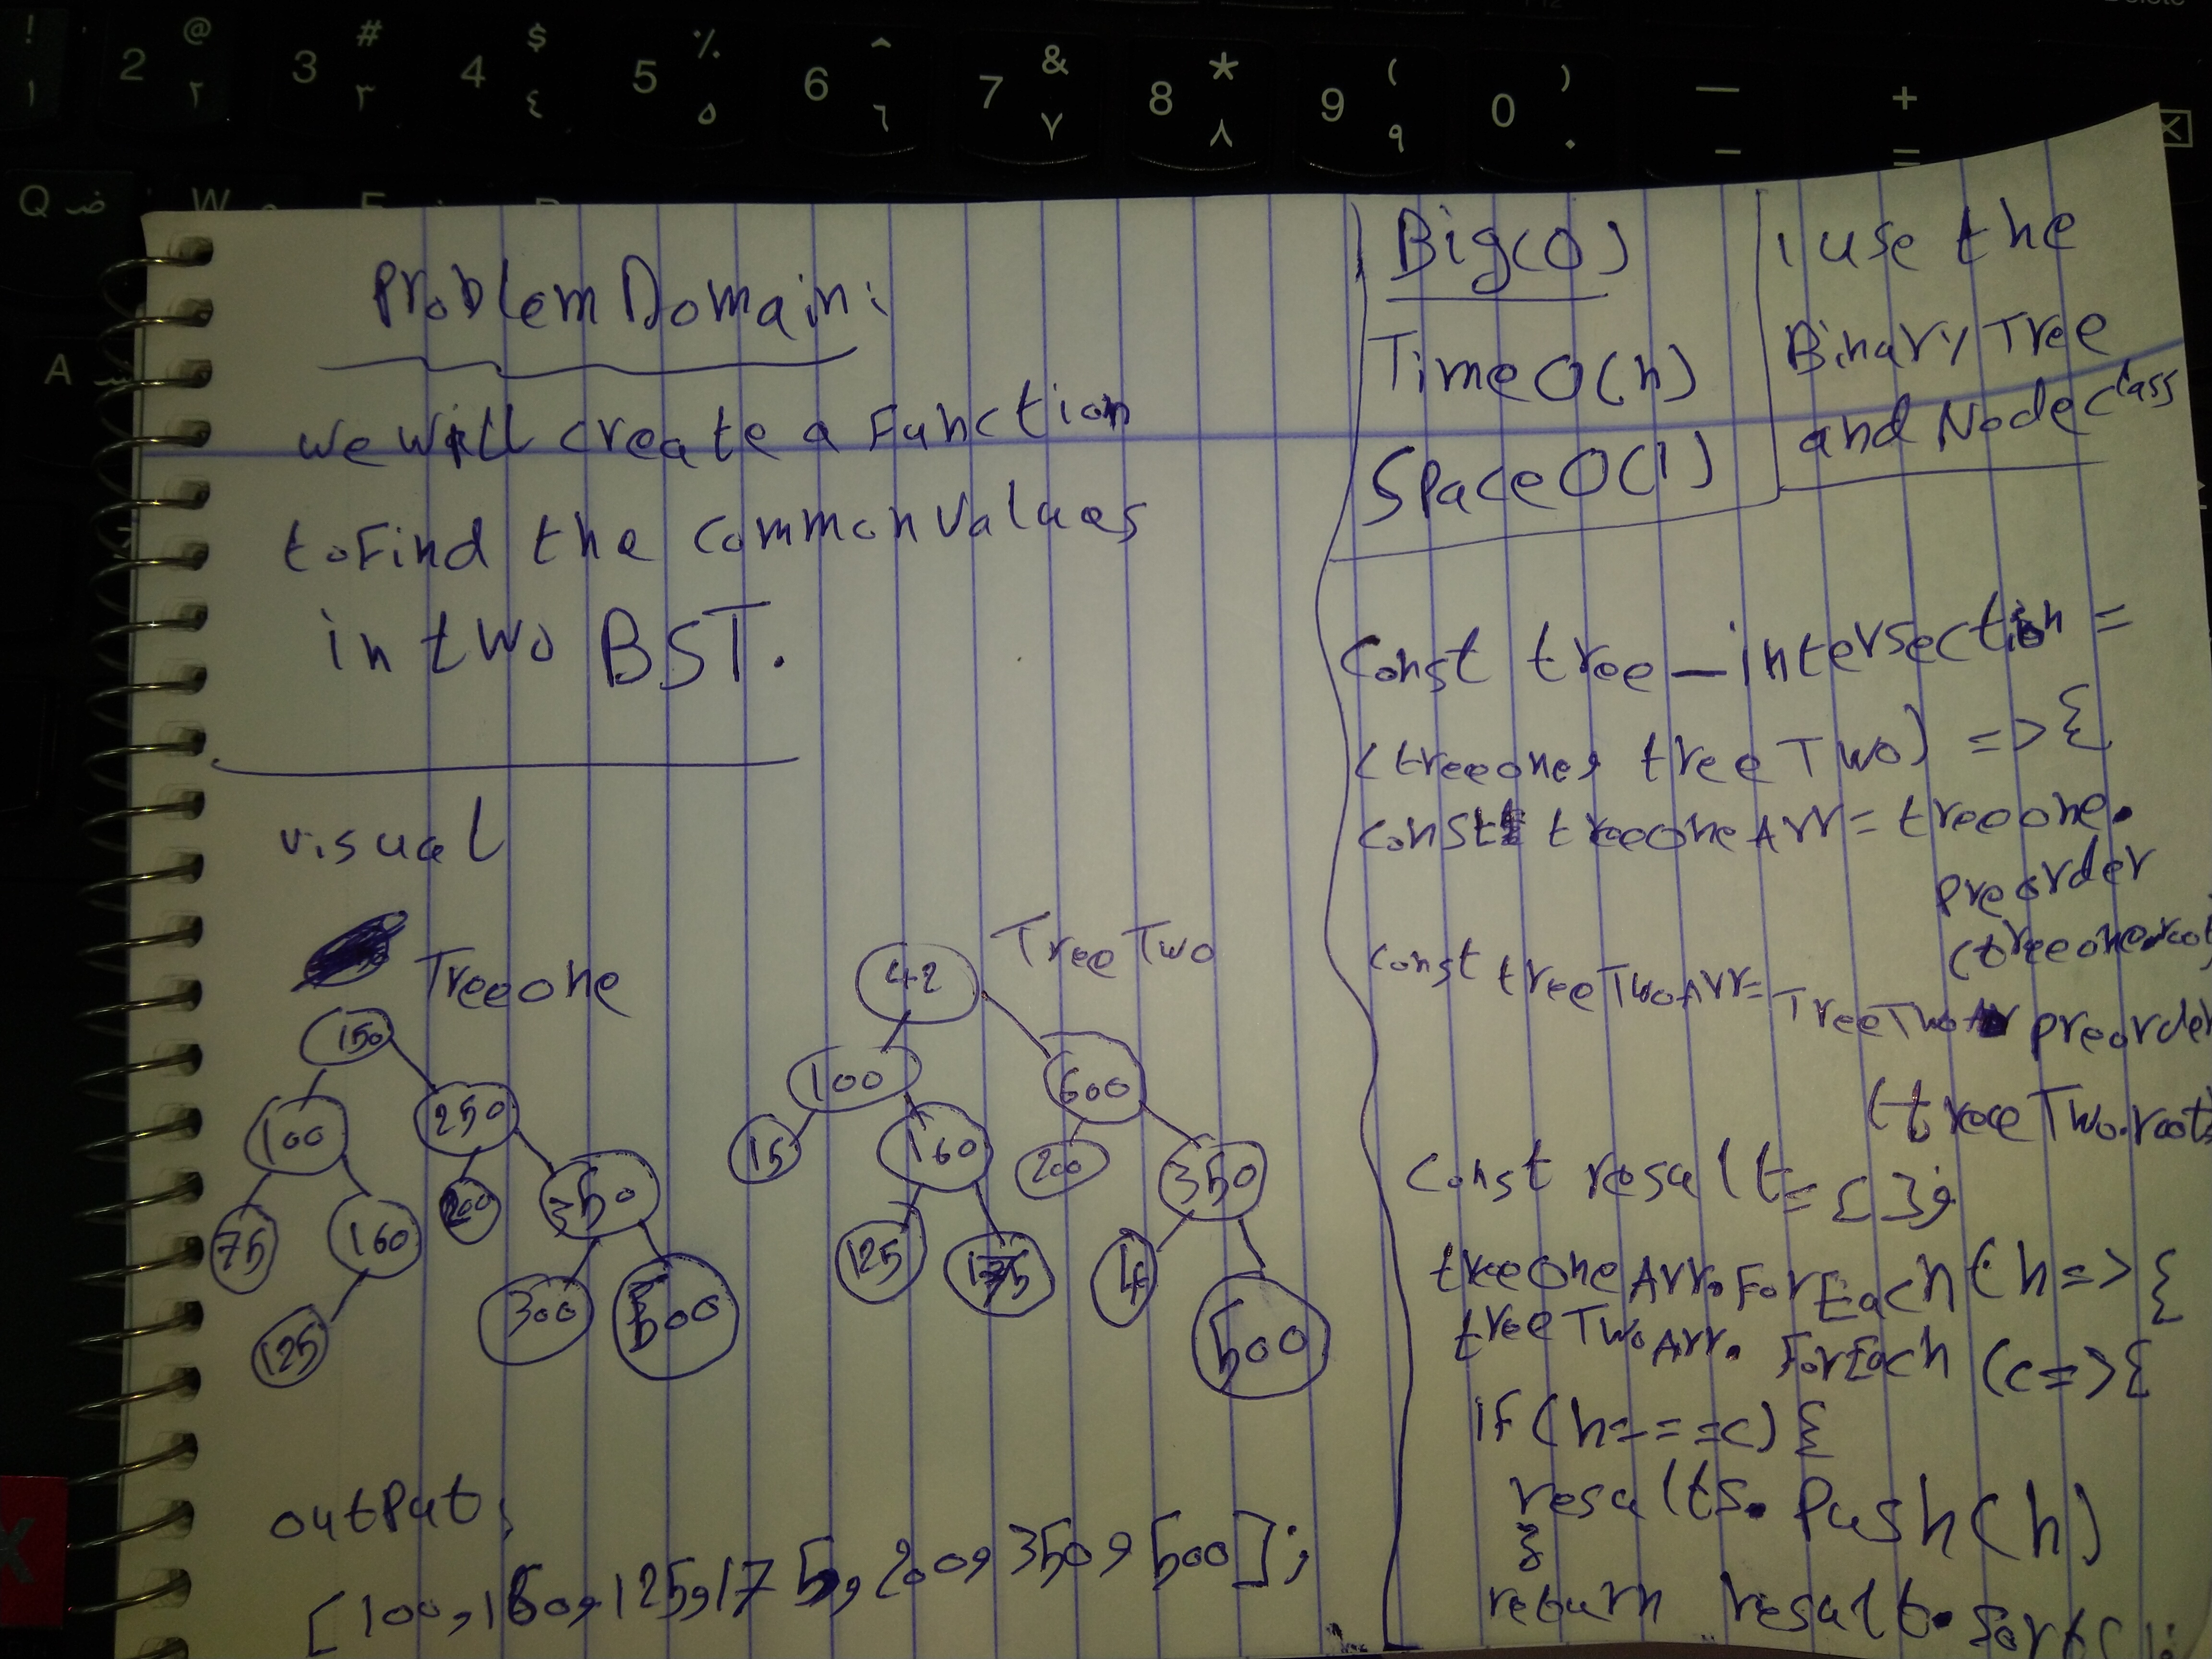 ! @ # $ % ^ & * ( ) — +
1 2 3 4 5 6 7 8 9 0 - =
١ ٢ ٣ ٤ ٥ ٦ ٧ ٨ ٩ .
Q ض W
A ش
Problem Domain:
we will create a Function
to Find the common Values
in two BST.
visual
Tree one
150
100 250
75 160 200 350
125 300 500
Tree Two
42
100 600
15 160 200 350
125 175 4 500
output:
[100,160,125,175,200,350,500];
Big(O)
Time O(n)
Space O(1)
I use the
Binary Tree
and Node class
Const tree_intersection =
(treeone, treeTwo) => {
const treeoneArr = treeone.
preorder
(treeone.root
const treeTwoArr= TreeTwo preorder
(treeTwo.root)
Const result={ };
treeOneArr.ForEach(n=>{
treeTwoArr. ForEach (c=>{
if(n===c) {
results.Push(n)
}
return result.sort();